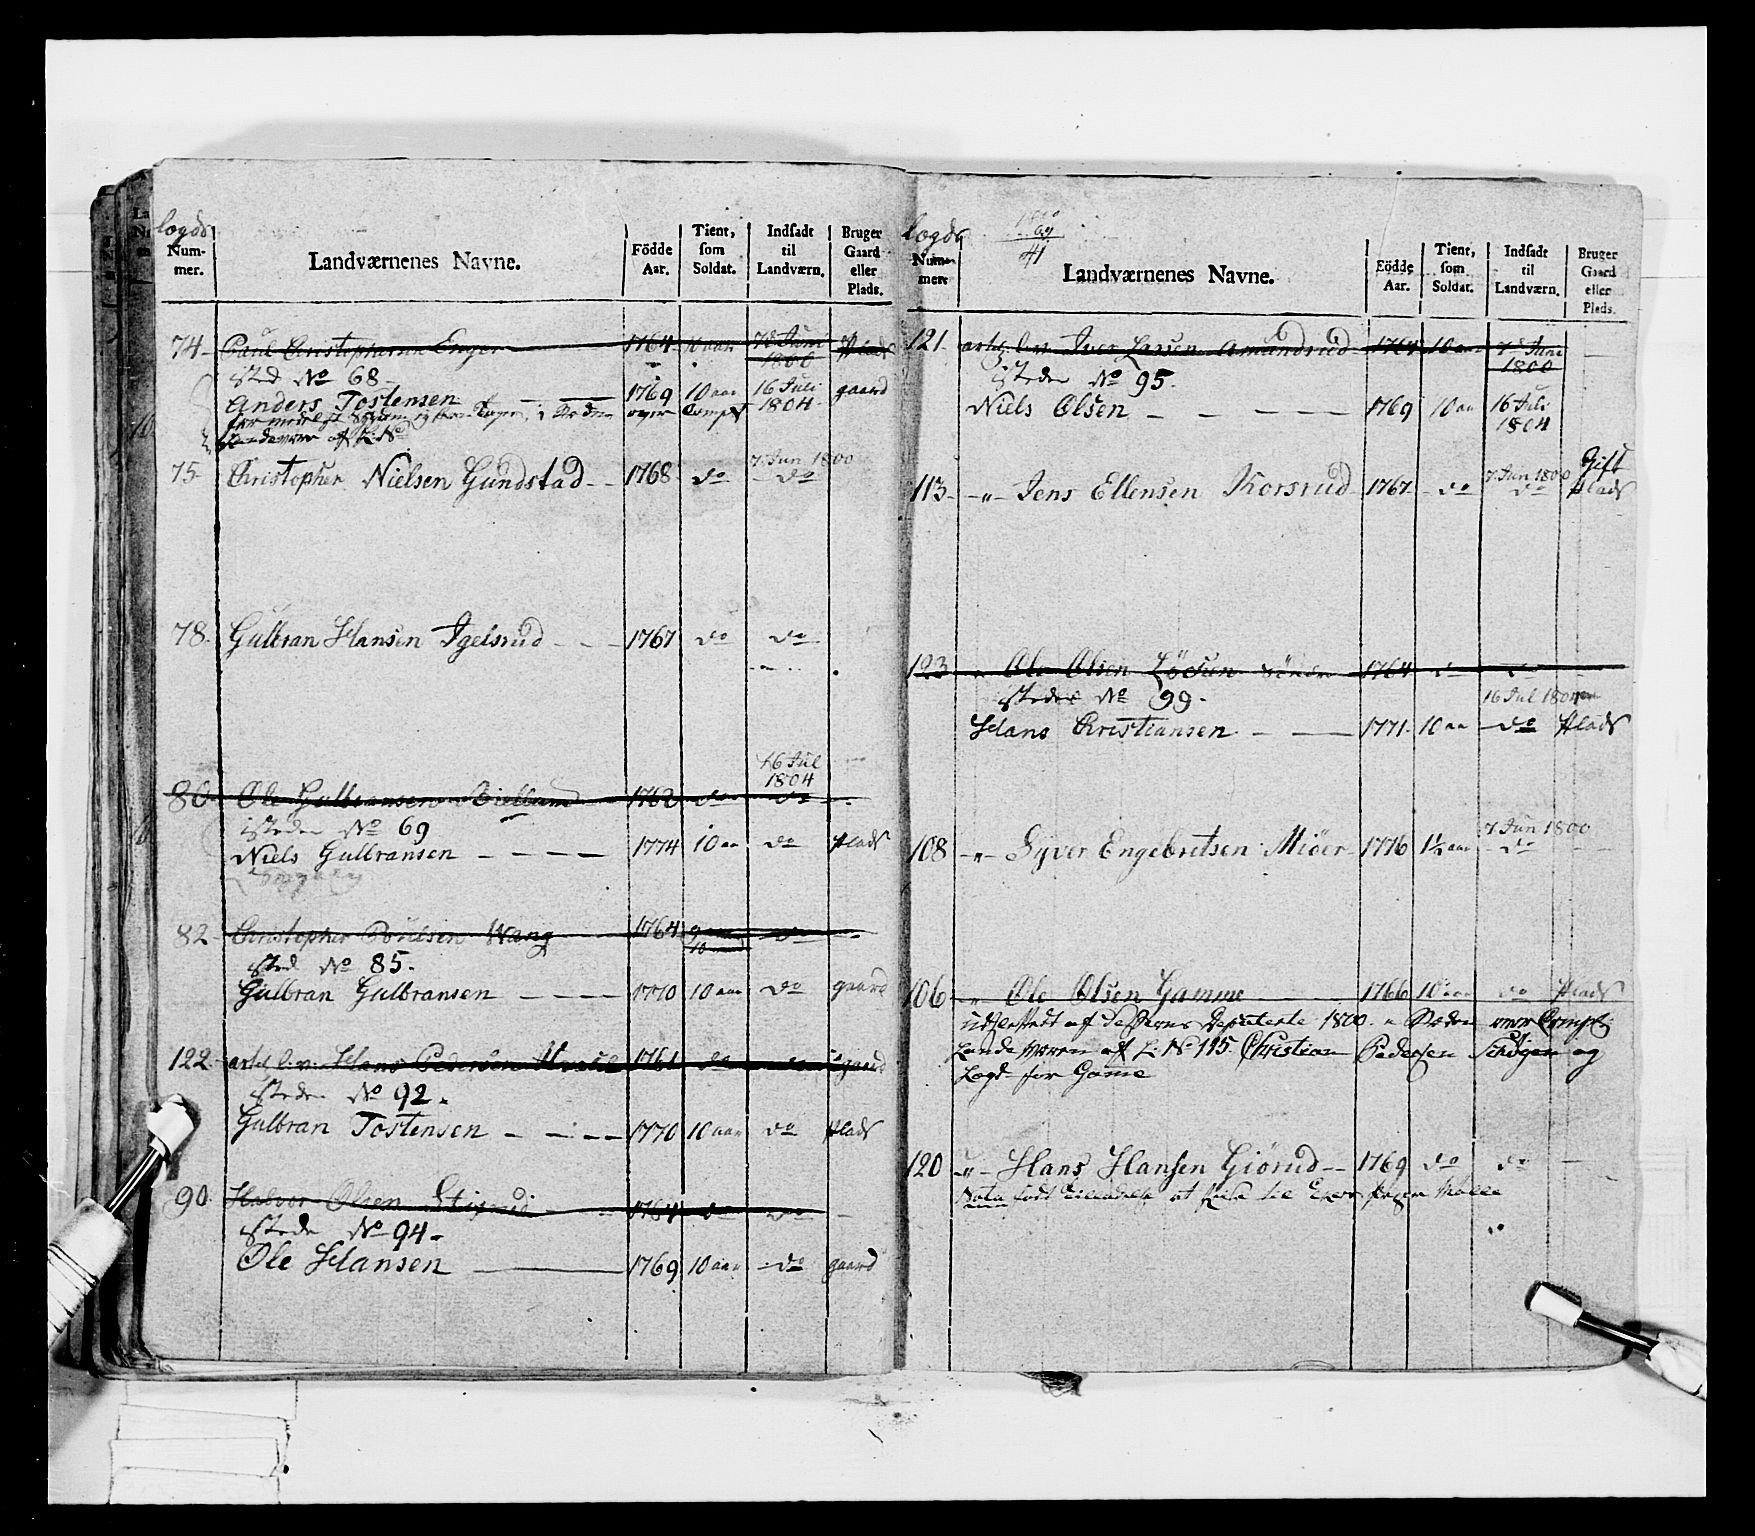 Lægds
Num-
mer.
Landværnenes Navne.
Födde
Aar.
Tient,
som
Soldat.
Indsadt
til
Landværn.
Bruger
Gaard
eller
Plads.
74 Paul Christophersen Enger 1764 10 aar 7de Juni 1800 Plads
isted No 68
Anders Tostensen 1769 10 aar 16 Juli 1804 gaard
75 Christopher Nielsen Gundstad 1768 do 7 Jun 1800 do
78 Gulbran Hansen Igelsrud 1767 do do
16 Jul
1804
80 Ole Gulbransen 1762 do do
isteden No 69
Niels Gulbransen 1774 10 aar do Plads
82 Christopher Poulsen Wang 1764 do
isted No 85.
Gulbran Gulbransen 1770 10 aar do gaard
122 Hans Pedersen 1761 do do gaard
isteden No 92.
Gulbran Tostensen 1770 10 aar do Plads
90 Halvor Olsen 1764 do do
istede No 94
Ole Hansen 1769 10 aar do gaard
Lægds
Num-
mere
Landværnenes Navne.
Födde
Aar.
Tient,
som
Soldat.
Indsadt
til
Landværn.
Bruger
Gaard
eller
Plads.
121 Iver Larsen Amundrud 1764 10 aar 7de Juni 1800
isteden No 95.
Niels Olsen 1769 10 aar 16 Juli 1804
113 -"- Jens Ellensen Korsrud 1767 do 7 Jun 1800 do Gift Plads
123 " Ole Olsen 1764
isteden No 99.
16 Jul 1804
Hans Christiansen 1771 10 aar do Plads
108 -"- Syver Engebretsen Miöer 1776 1½ aar 7 Jun 1800 do
106 " Ole Olsen Gamme 1766 10 aar do Plads
1800.
af L: No 115 Christian Pedersen og
Lægd for Game
120 -"- Hans Hansen Giörud 1769 do do
Nota